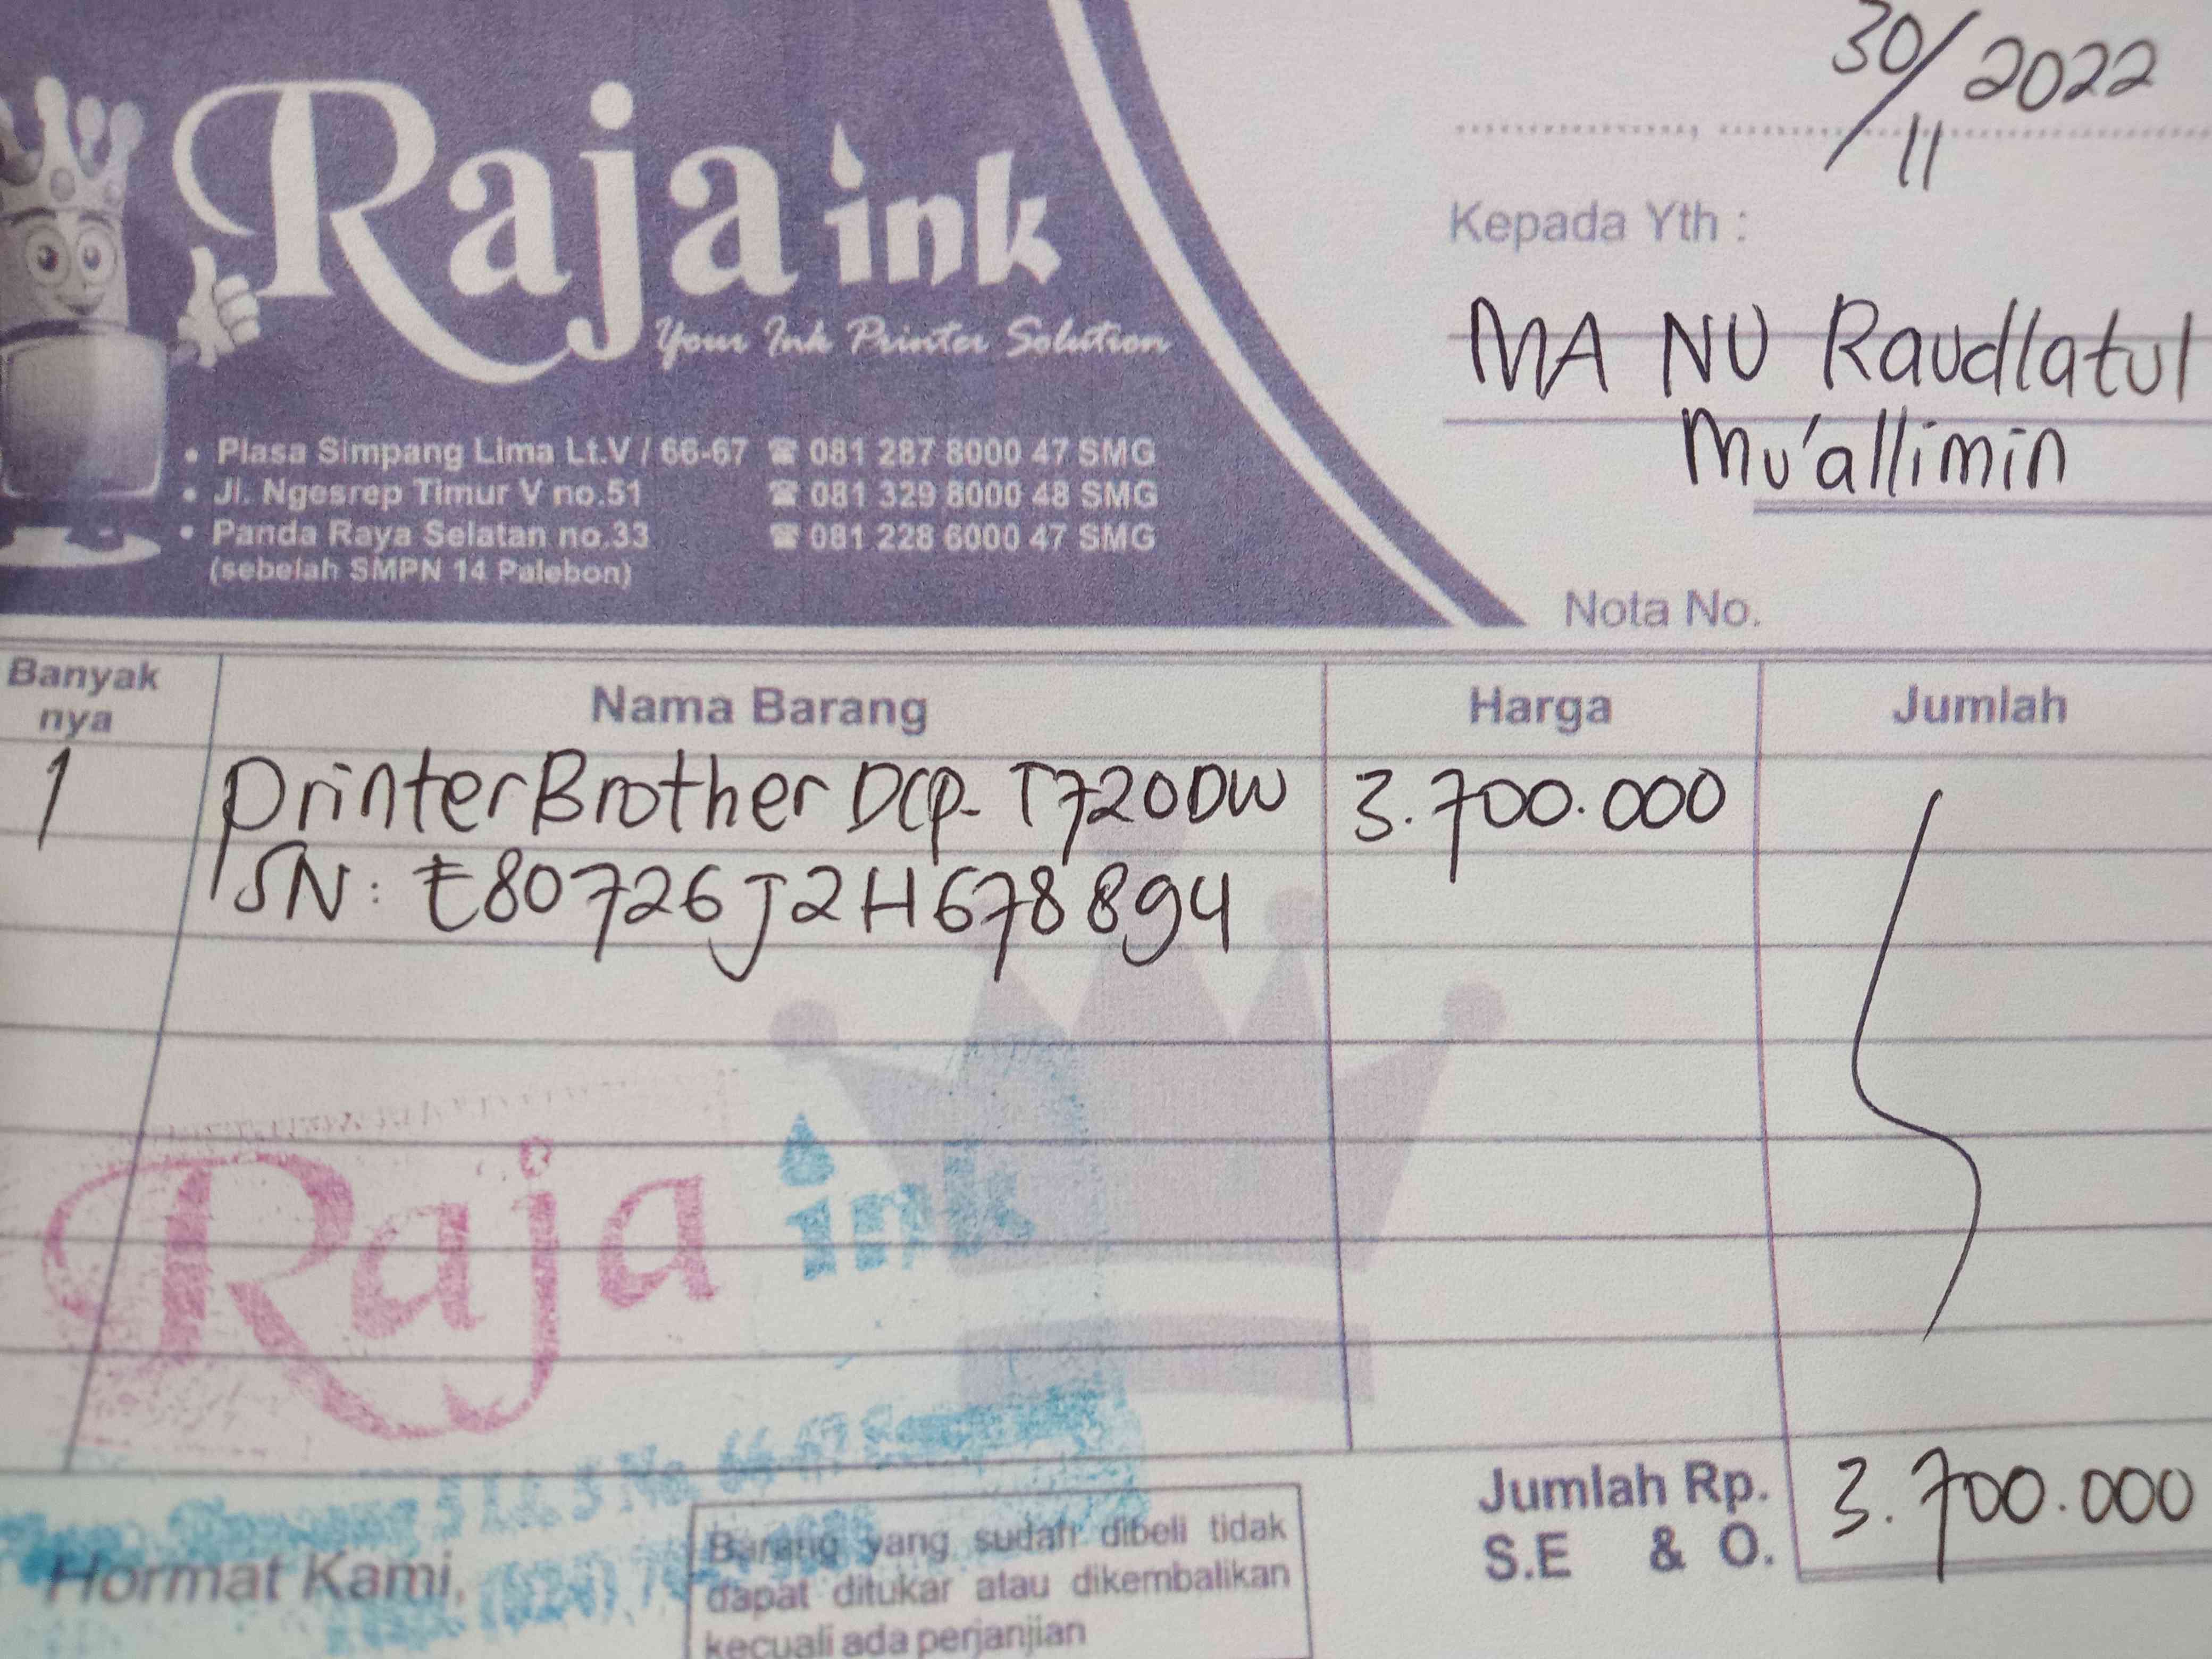 Raja ink
Your Ink Printer Solution
• Plasa Simpang Lima Lt.V / 66-67 ☎ 081 287 8000 47 SMG
• Jl. Ngesrep Timur V no.51 ☎ 081 329 8000 48 SMG
• Panda Raya Selatan no.33 ☎ 081 228 6000 47 SMG
(sebelah SMPN 14 Palebon)
30/11 2022
Kepada Yth :
MA NU Raudlatul
Mu'allimin
Nota No.
Banyak nya Nama Barang Harga Jumlah
1 Printer Brother Dcp- T720DW 3.700.000
SN: E80726J2H678894
Raja ink
Jumlah Rp. 3.700.000
S.E & O.
Hormat Kami,
Barang yang sudah dibeli tidak
dapat ditukar atau dikembalikan
kecuali ada perjanjian